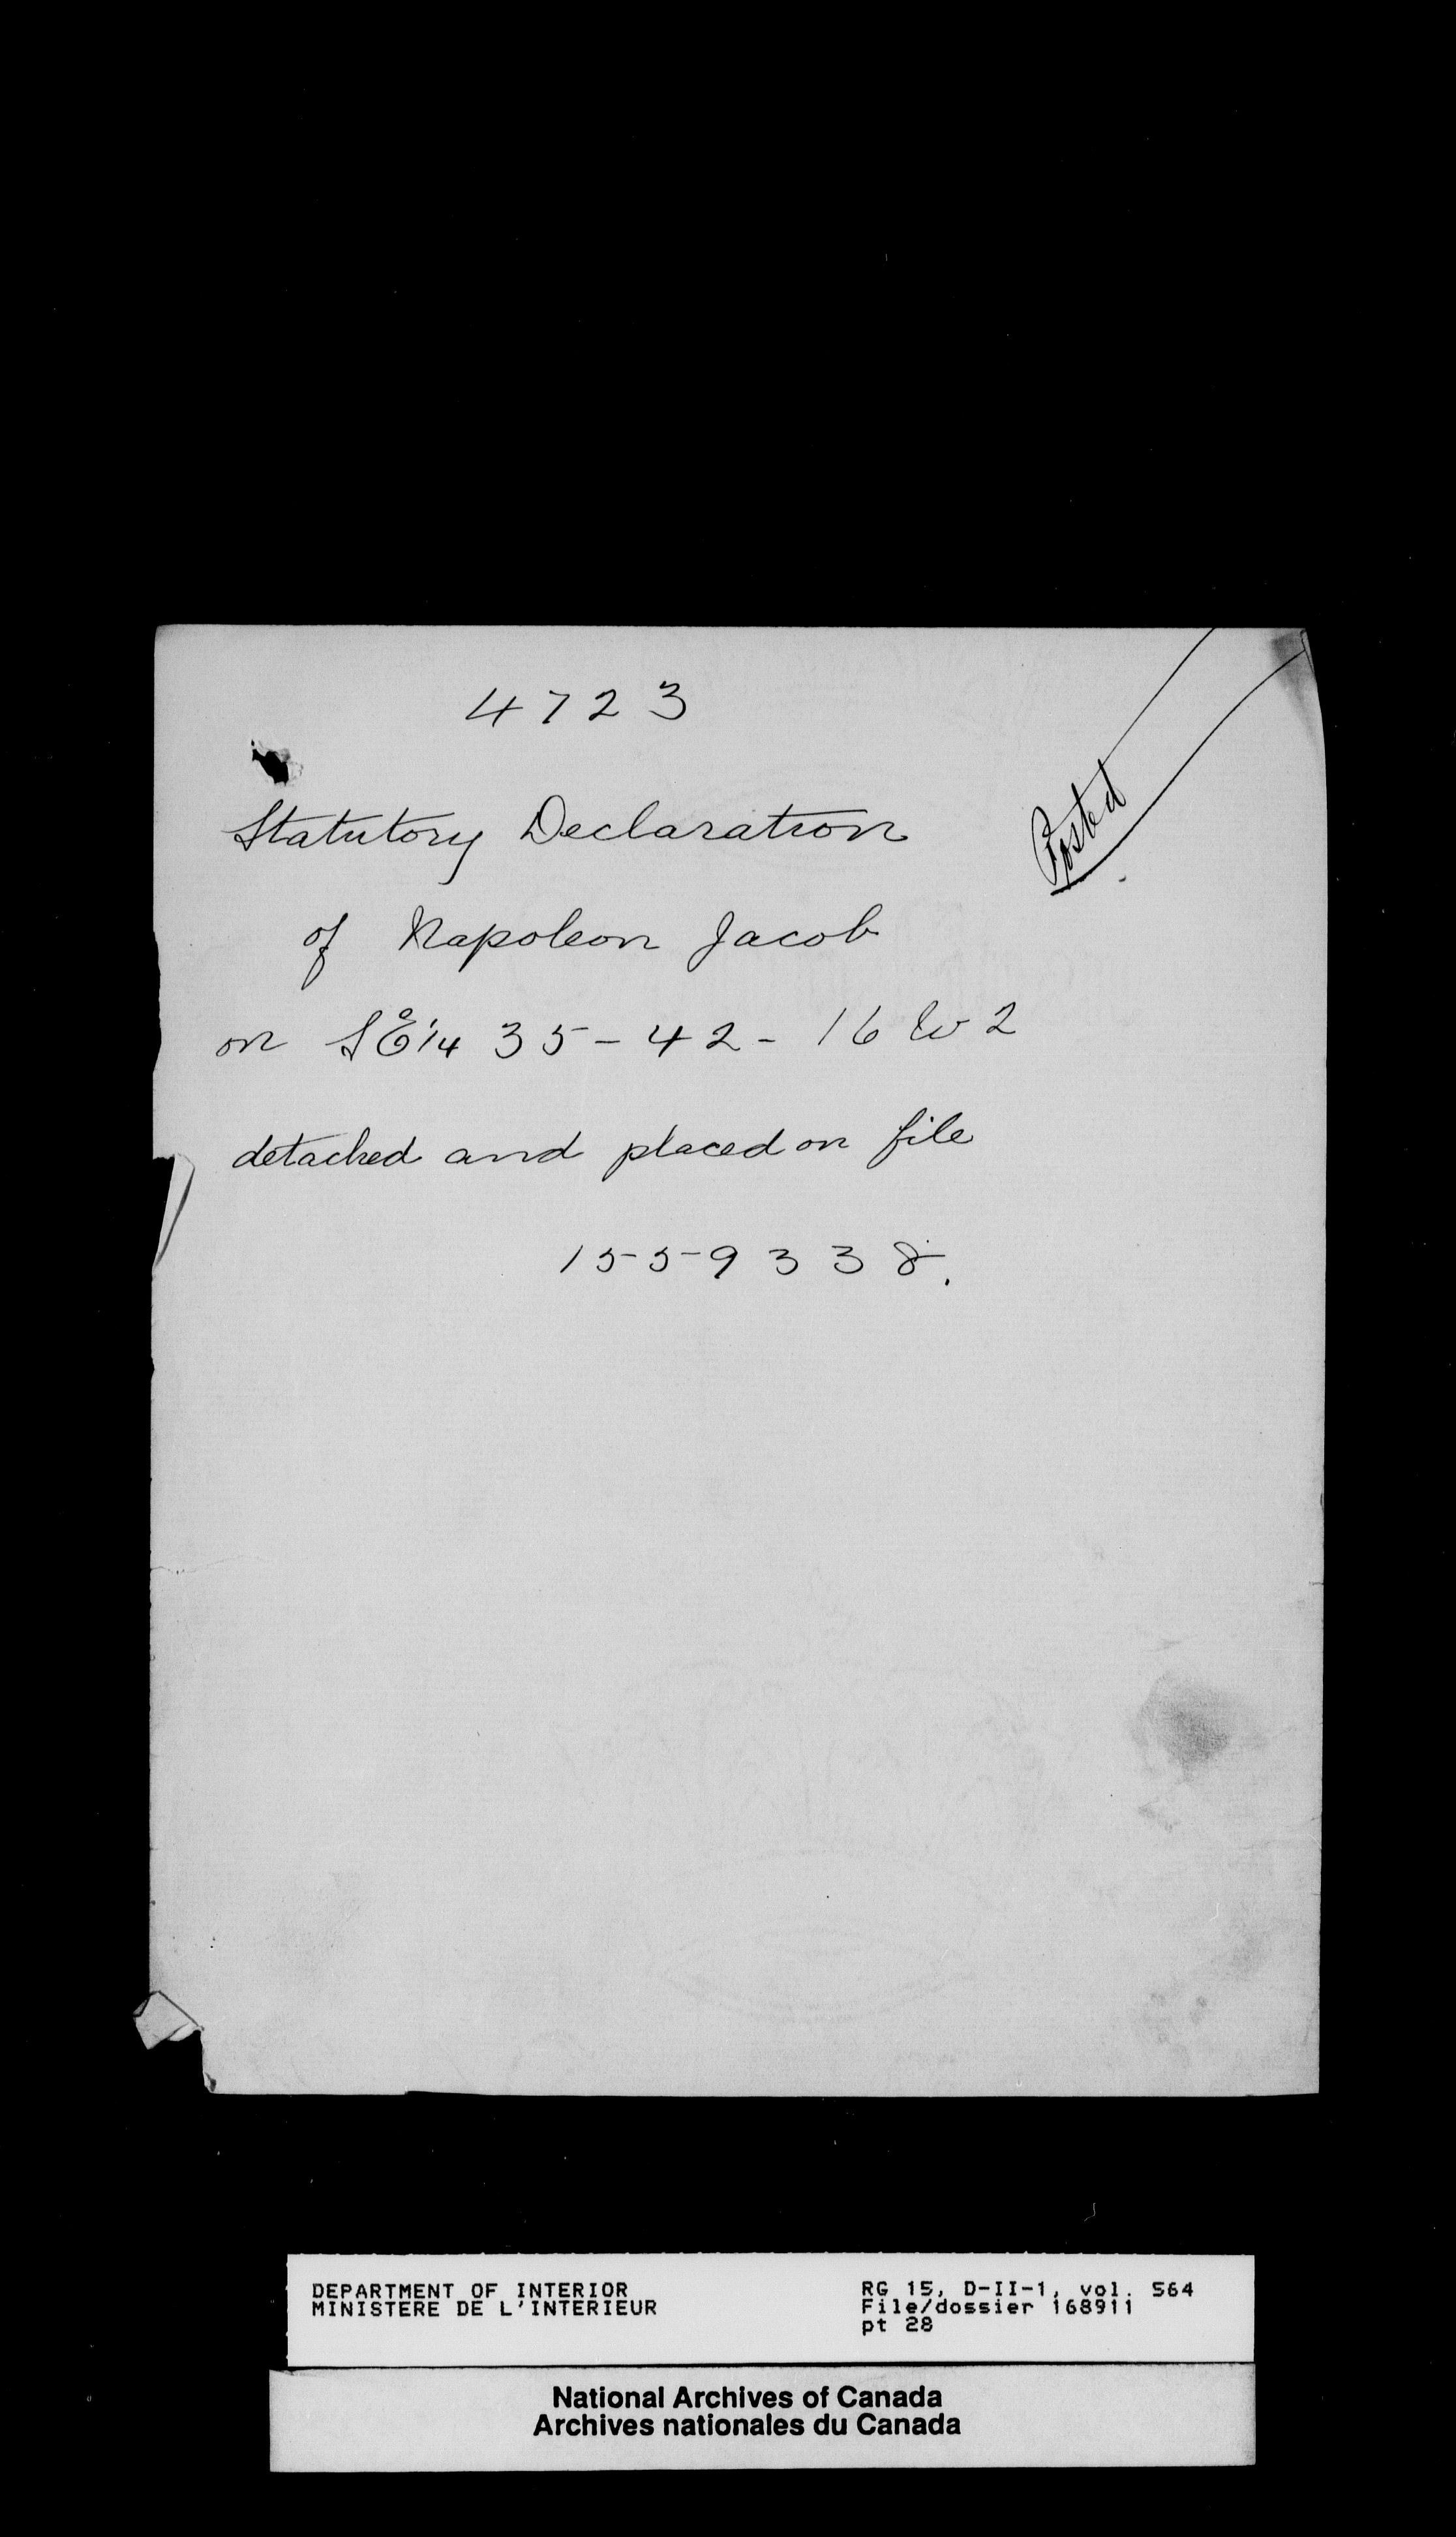 4723
Posted
Statutory Declaration
of Napoleon Jacob
on SE 1/4 35 - 42 - 16 W 2
detached and placed on file
1559338.
DEPARTMENT OF INTERIOR
MINISTERE DE L'INTERIEUR
RG 15, D-II-1, vol. 564
File/dossier 168911
pt 28
National Archives of Canada
Archives nationales du Canada